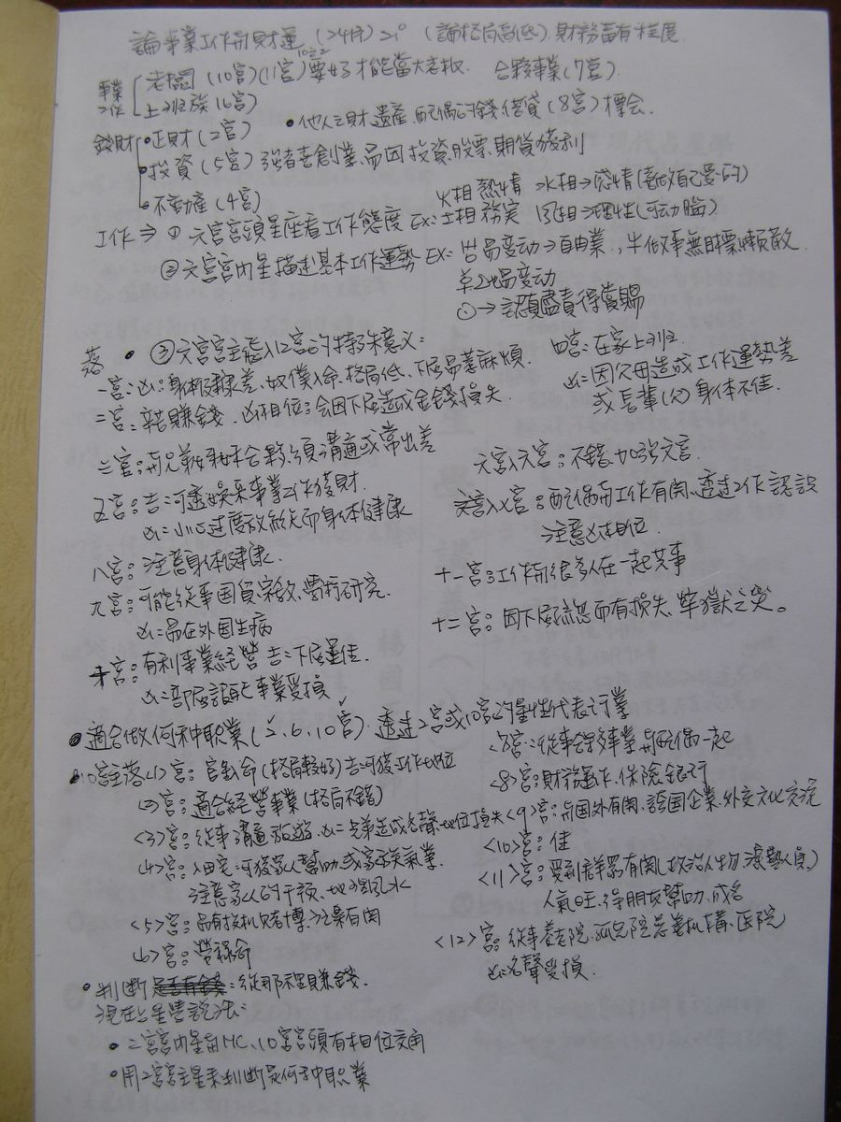 論事業工作與財運 (論格局高低) 財務富有程度
事業工作 老闆 (10宮)(11宮)要好才能當大老板 合夥事業(7宮)
上班族(6宮)
錢財 • 正財(2宮) • 他人之財 遺產、配偶的錢 借貸(8宮) 標會
• 投資(5宮) 強者喜創業、易因投資、股票、期貨獲利
• 不動產(4宮) 火相 熱情 水相→感情(喜做自己愛的)
工作⇒ ① 六宮宮頭星座看工作態度 EX: 土相 務実 風相→理性(可动腦)
② 六宮宮內星描述基本工作運勢 EX= 易变动→自由業, 做事無目標、懶散
易变动
☉→認真盡責得賞賜
落 • ③ 六宮宮主 入12宮的特殊意义:
一宮:凶=身体健康差、奴僕入命、格局低、下屬易惹麻煩. 四宮:在家上班
凶=因父母造成工作運勢差
或長輩(父)身体不佳.
二宮: 辛苦賺錢. 凶相位:会因下屬造成金錢損失.
三宮:與兄弟姊妹合夥、須溝通或常出差
六宮入六宮:不錯、加強六宮.
五宮:吉=可透過娛乐事業工作發財.
凶=小心過度放縱而身体健康
六宮入七宮:配偶與工作有関、透过工作認識
注意凶相位.
八宮:注意身体健康.
九宮:可能從事国貿、宗教、學術研究. 十一宮:工作與很多人在一起共事
凶=易在外国生病 十二宮:因下屬疏忽而有損失、牢獄之災。
十宮:有利事業經營 吉=下屬量佳.
凶=部屬 事業受損
• 適合做何种职業(2、6、10宮). 透過2宮或10宮的星性代表行業
• 10宮主落<1>宮: 官 命(格局較好)吉=可獲工作地位 <7>宮:從事合夥事業、與配偶一起
<2>宮:適合經營事業(格局不錯) <8>宮:財務運作、保險、銀行
<3>宮:從事溝通、旅遊、凶=兄弟造成名聲、地位損失 <9>宮:與国外有関、跨国企業、外交文化交流
<4>宮:入田宅=可獲家人幫助、或家族氣業. <10>宮:佳
注意家人的干預、地理風水 <11>宮:受到群眾有関(政治人物、演藝人員)
人氣旺、得朋友幫助、成名
<5>宮:易有投机、賭博、孩童有関
<6>宮:勞碌命 <12>宮:從事養老院、孤兒院慈善机構、医院
凶=名聲受損.
• 判断是否有錢:從那裡賺錢.
現在占星學說法:
• 二宮宮內星與MC、10宮宮頭有相位交角
• 用二宮宮主星來判断是何种职業